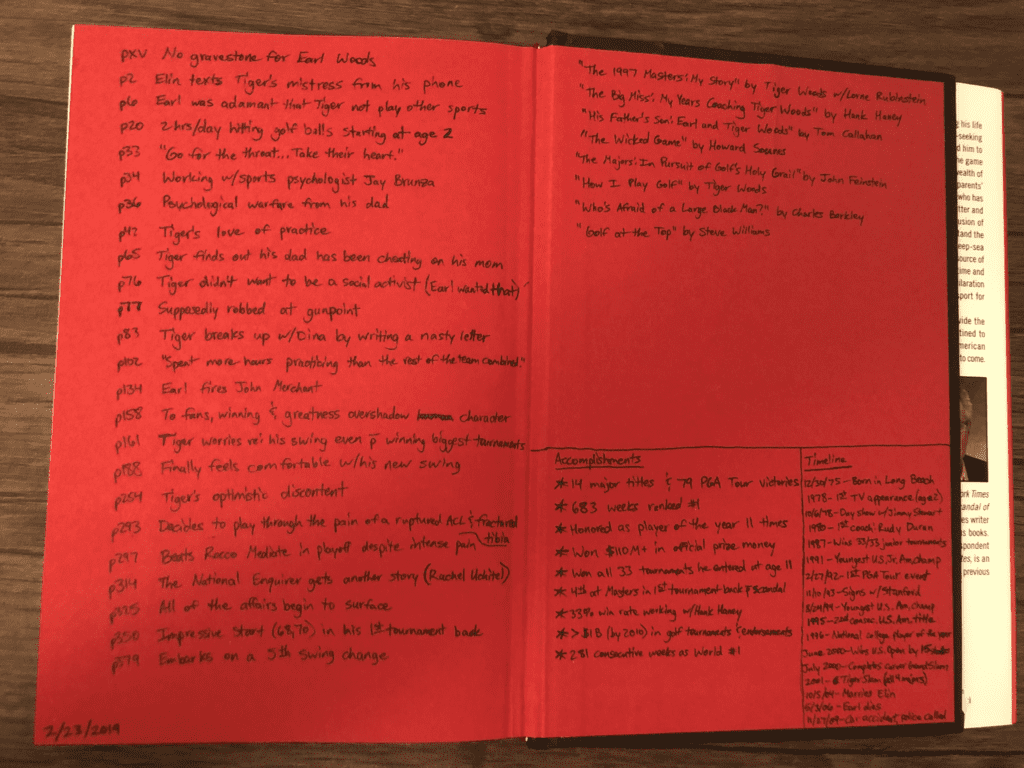 pxv No gravestone for Earl Woods
p2 Elin texts Tiger's mistress from his phone
p6 Earl was adamant that Tiger not play other sports
p20 2hrs/day hitting golf balls starting at age 2
p33 "Go for the throat... Take their heart."
p34 Working w/sports psychologist Jay Brunza
p36 Psychological warfare from his dad
p42 Tiger's love of practice
p65 Tiger finds out his dad has been cheating on his mom
p76 Tiger didn't want to be a social activist (Earl wanted that)
p77 Supposedly robbed at gunpoint
p83 Tiger breaks up w/Dina by writing a nasty letter
p102 "Spent more hours practicing than the rest of the team combined."
p134 Earl fires John Merchant
p158 To fans, winning & greatness overshadow character
p161 Tiger worries re: his swing even p̄ winning biggest tournaments
p188 Finally feels comfortable w/his new swing
p254 Tiger's optimistic discontent
p293 Decides to play through the pain of a ruptured ACL & fractured tibia
p297 Beats Rocco Mediate in playoff despite intense pain
p314 The National Enquirer gets another story (Rachel Uchitel)
p325 All of the affairs begin to surface
p350 Impressive start (68,70) in his 1st tournament back
p379 Embarks on a 5th swing change
2/23/2019
"The 1997 Masters: My Story" by Tiger Woods w/Lorne Rubinstein
"The Big Miss: My Years Coaching Tiger Woods" by Hank Haney
"His Father's Son: Earl and Tiger Woods" by Tom Callahan
"The Wicked Game" by Howard Sounes
"The Majors: In Pursuit of Golf's Holy Grail" by John Feinstein
"How I Play Golf" by Tiger Woods
"Who's Afraid of a Large Black Man?" by Charles Barkley
"Golf at the Top" by Steve Williams
Accomplishments
* 14 major titles & 79 PGA Tour victories
* 683 weeks ranked #1
* Honored as player of the year 11 times
* Won $110M+ in official prize money
* Won all 33 tournaments he entered at age 11
* 4th at Masters in 1st tournament back p̄ scandal
* 33% win rate working w/Hank Haney
* > $1B (by 2010) in golf tournaments & endorsements
* 281 consecutive weeks as World #1
Timeline
12/30/75 - Born in Long Beach
1978 - 1st TV appearance (age 2)
10/6/78 - Day show w/Jimmy Stewart
1980 - 1st coach Rudy Duran
1987 - Wins 33/33 junior tournaments
1991 - Youngest U.S. Jr. Am. champ
2/27/92 - 1st PGA Tour event
11/10/93 - Signs w/Stanford
- Youngest U.S. Am. champ
1995 - 2nd consec. U.S. Am. title
1996 - National college player of the year
June 2000 - Wins U.S. Open by 15 strokes
July 2000 - Completes career Grand Slam
2001 - Tiger Slam (all 4 majors)
10/5/04 - Marries Elin
5/3/06 - Earl dies
11/27/09 - Car accident, police called
g his life
-seeking
d him to
he game
wealth of
parents'
who has
tter and
usion of
tand the
eep-sea
source of
ime and
laration
sport for
vide the
tined to
merican
to come.
ork Times
candal of
es writer
is books.
spondent
tes, is an
previous